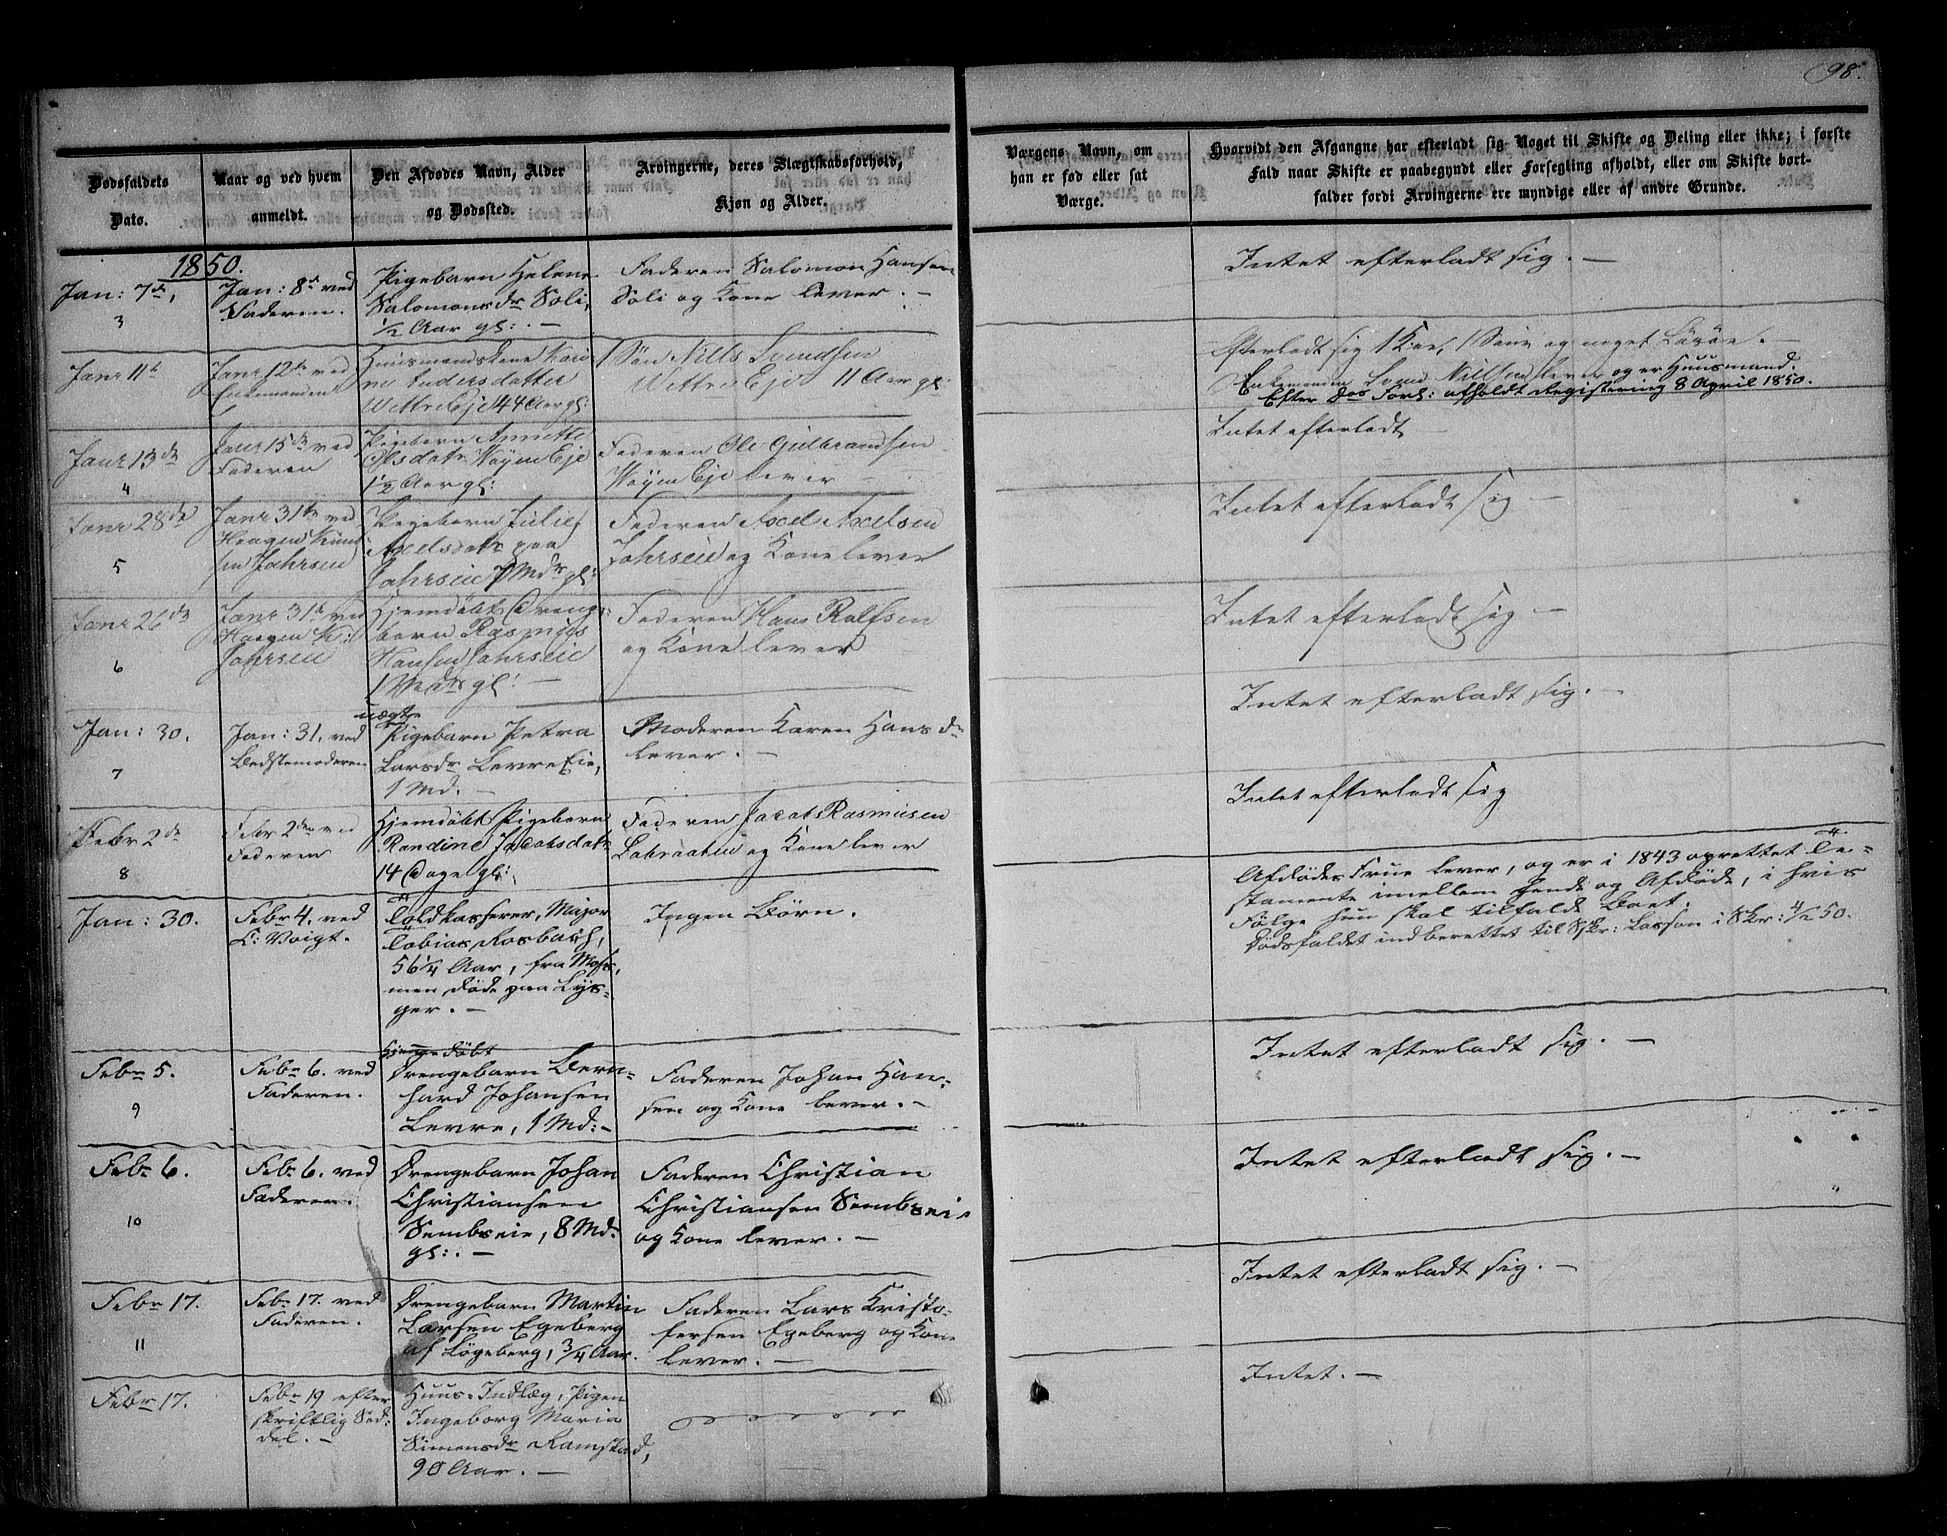 98.
Dødsfaldets
Dato.
Naar og ved hvem
anmeldt.
Den Afdødes Navn, Alder
og Dødssted.
Arvingerne, deres Slægtskabsforhold,
Kjøn og Alder.
Værgens Navn, om
han er fød eller sat
Værge.
Hvorvidt den Afgangne har efterladt sig Noget til Skifte og Deling eller ikke; i første
Fald naar Skifte er paabegyndt eller Forsegling afholdt, eller om Skifte bort-
falder fordi Arvingerne ere myndige eller af andre Grunde.
1850.
Jan: 7de,
3
Jan: 8de ved
Faderen.
Pigebarn Helene
Salomonsdr Soli,
1/2 Aar gl: . —
Faderen Salomon Hansen
Soli og Kone lever. —
Intet efterladt sig. —
Janr 11te
Janr 12te ved
Enkemanden
Huusmandskone Kari
ne Andersdatter
Wettre Eje 44 Aar gl:
1 Søn Nills Svendsen
Wettre Eje 11 Aar gl:
Efterladt sig 1 Koe, 1 og noget Løsøre. —
Enkemanden Svend Nillsen lever og er Huusmand.
Efter Dos Forl: afholdt Registrering 8 April 1850.
Janr 13de
4
Janr 15de ved
Faderen
Pigebarn Annette
Olsdatr Wøyen Eje
1 1/2 Aar gl:
Faderen Ole Gulbrandsen
Wøyen Eje lever —
Intet efterladt —
Janr 28de
5
Janr 31te ved
Haagen Knud
sen Jahrseie
Pigebarn Julie
Axelsdatr paa
Jahrseie 7 Mdr gl:
Faderen Axel Axelsen
Jahrseie og Kone lever
Intet efterladt sig —
Janr 26de
6
Janr 31te ved
Haagen K:
Jahrseie
Hjemdøbt Drenge
barn Rasmus
Hansen Jahrseie
1 Mdr gl: —
Faderen Hans Rolfsen
og Kone lever
Intet efterladt sig —
Jan: 30.
7
Jan: 31. ved
Bedstemoderen
uægte
Pigebarn Petra
Larsdr Levre Eie,
1 Md. —
Moderen Karen Hansdr
lever. —
Intet efterladt sig. —
Febr 2de
8
Febr 2den ved
Faderen
Hjemdøbt Pigebarn
Randine Jacobsdatr
14 Dage gl:
Faderen Jacob Rasmusen
og Kone lever
Intet efterladt sig
Jan: 30.
Febr 4. ved
C: Voigt.
Toldkasserer, Major
Tobias Rosbach,
56 1/4 Aar, fra Moss,
men døde paa Lys-
ger. —
Ingen Børn.
Afdødes Frue lever, og er i 1843 oprettet Te-
stamente imellem hende og Afdøde, i hvis
Følge hun skal tilfalde Boet.
Dødsfaldet indberettet til Skr: Lasson i Skr: 4/2 50.
Febr 5.
9
Febr 6. ved
Faderen.
Hjemmedøbt
Drengebarn Bern-
hard Johansen
Levre, 1 Md: —
Faderen Johan Han-
sen og Kone lever. —
Intet efterladt sig. —
Febr 6.
10
Febr 6. ved
Faderen.
Drengebarn Johan
Christiansen
Sembseie, 8 Md.
gl: . —
Faderen Christian
Christiansen Sembseie
og Kone lever. —
Intet efterladt sig. —
Febr 17.
11
Febr 17. ved
Faderen.
Drengebarn Martin
Larsen Egeberg
af Løgeberg, 3/4 Aar.
Faderen Lars Kristo-
fersen Egeberg og Kone
lever. —
Intet efterladt sig. —
Febr 17.
Febr 19 efter
skriftlig Sed-
del. —
Huus-Indlæg, Pigen
Ingeborg Maria
Simensdr Ramstad,
90 Aar. —
Intet. —